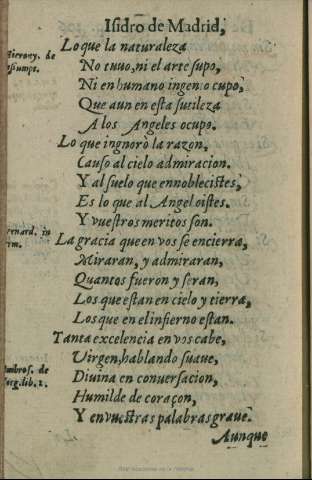 Isidro de Madrid,
Lo que la naturaleza
Hierony. de
assumpt.
No tuuo, ni el arte supo,
Ni en humano ingenio cupo,
Que aun en esta sutileza
A los Angeles ocupo.
Lo que ingnorò la razon,
Causo al cielo admiracion.
Y al suelo que ennoblecistes,
Es lo que al Angel oistes.
Y vuestros meritos son.
Bernard. in
La gracia que en vos se encierra,
Miraran, y admiraran,
Quantos fueron y seran,
Los que estan en cielo y tierra,
Los que en el infierno estan.
Tanta excelencia en vos cabe,
Uirgen, hablando suaue,
Ambros. de
Uirg. lib. 2.
Diuina en conuersacion,
Humilde de coraçon,
Y en vuestras palabras graue.
Aunque